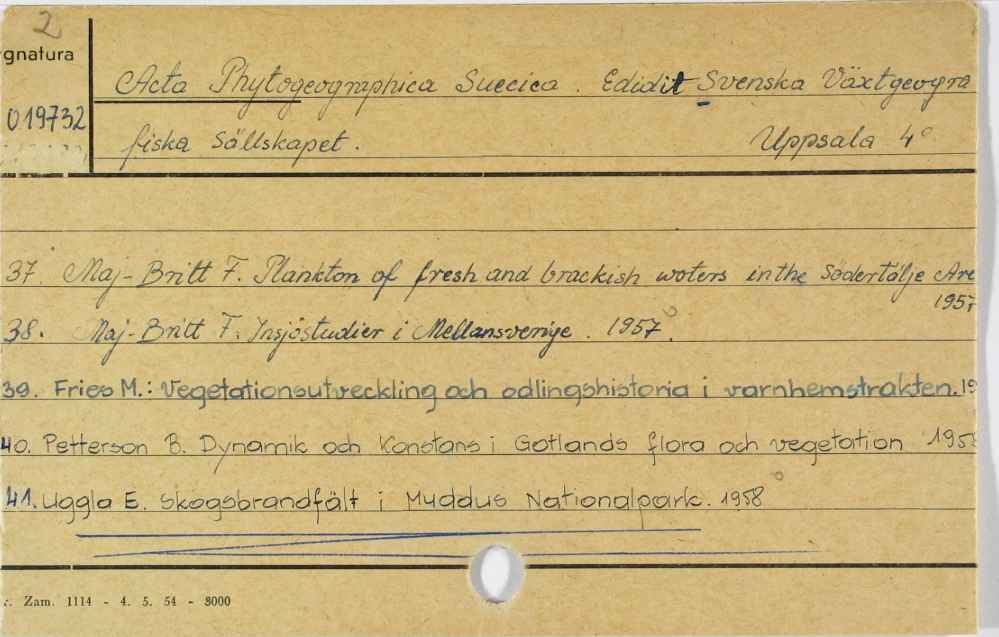 2
gnatura
019732
Acta Phytogeographica Suecica. Edidit Svenska Växtgeogra
fiska Sällskapet. Uppsala 4°
37. Maj-Britt F. Plankton of fresh and brackish woters in the Södertälje Are
1957
38. Maj-Britt F. Insjöstudier i Mellansverige. 1957.
39. Fries M.: Vegetationsutveckling och odlingshistoria i varnhemstrakten. 19
40. Petterson B. Dynamik och Konstans i Gotlands flora och vegetation 1958
41. Uggla E. Skogsbrandfält i Muddus Nationalpark. 1958
Zam. 1114 - 4. 5. 54 - 8000